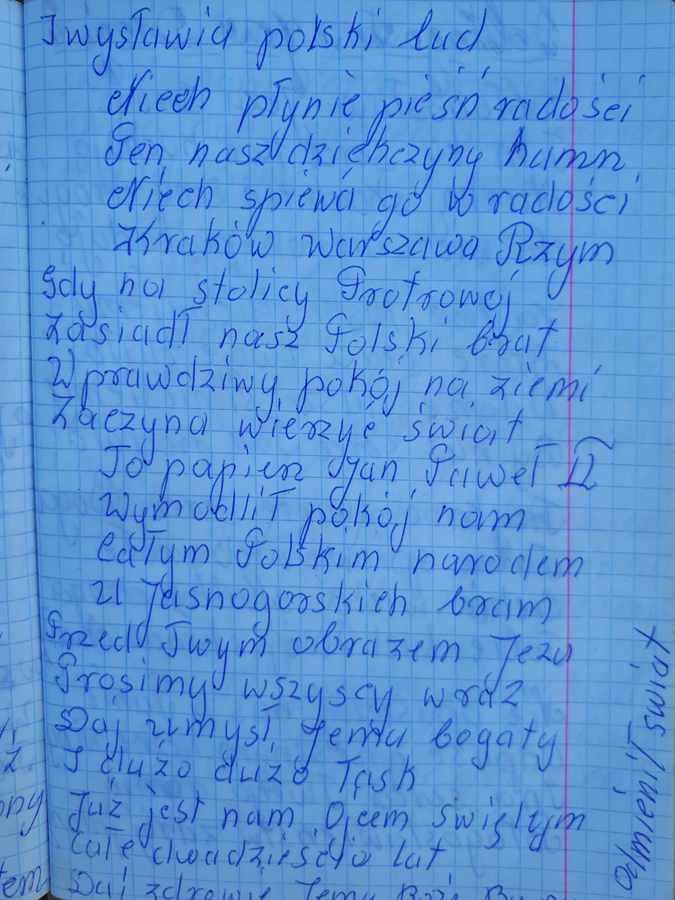 I wysławia polski lud
Niech płynie pieśń radości
Ten nasz dziękczyny hamn
Niech śpiewa go w radości
Kraków Warszawa Rzym
Gdy na stolicy Piotrowej
Zasiadł nasz Polski brat
W prawdziwy pokój na ziemi
Zaczyna wierzyć świat
To papież Jan Paweł II
Wymodlił pokój nam
Całym Polskim narodem
U Jasnogorskich bram
Przed Twym obrazem Jezu
Prosimy wszyscy wraz
Daj umysł Jemu bogaty
I dużo dużo łask
Już jest nam Ojcem świętym
Całe dwadzieścia lat
Daj zdrowie Jemu Boże
Odmienił świat